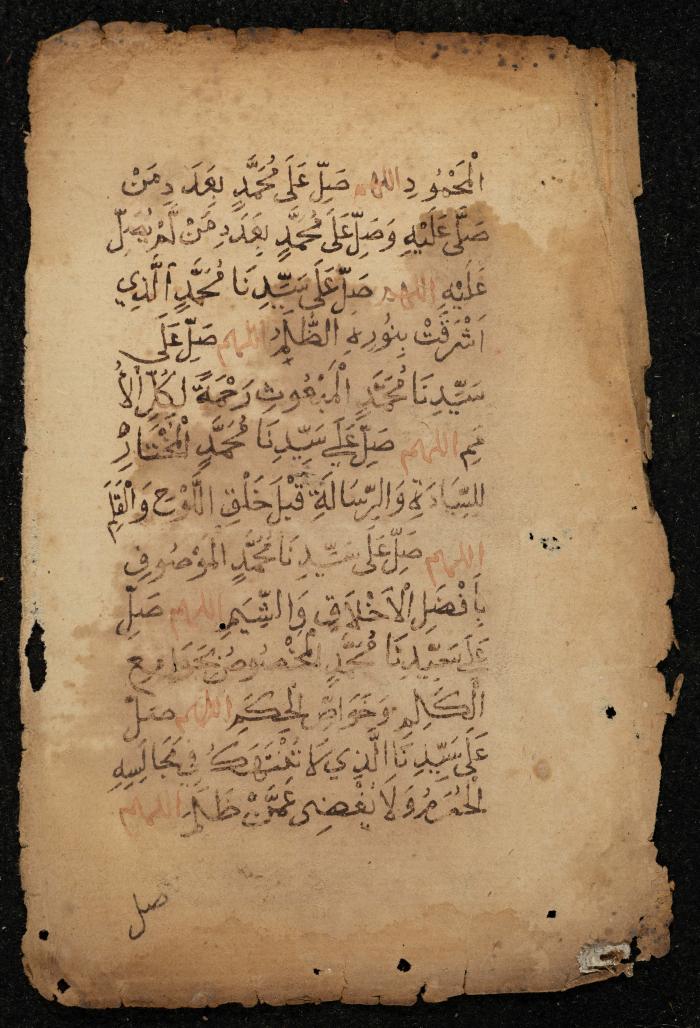 الْمَحْمُودِ اللهم صَلِّ عَلَى مُحَمَّدٍ بِعَدَدِ مَنْ
صَلَّى عَلَيْهِ وَصَلِّ عَلَى مُحَمَّدٍ بِعَدَدِ مَنْ لَمْ يُصَلِّ
عَلَيْهِ اللهم صَلِّ عَلَى سَيِّدِنَا مُحَمَّدٍ الَّذِي
اَشْرَقَتْ بِنُورِهِ الظُّلَمُ اللهم صَلِّ عَلَى
سَيِّدِنَا مُحَمَّدٍ الْمَبْعُوثِ رَحْمَةً لِكُلِّ الْأُ
مَمِ اللهم صَلِّ عَلَى سَيِّدِنَا مُحَمَّدٍ الْمُخْتَارِ
لِلسِّيَادَةِ وَالرِّسَالَةِ قَبْلَ خَلْقِ اللَّوْحِ وَالْقَلَمِ
اللهم صَلِّ عَلَى سَيِّدِنَا مُحَمَّدٍ الْمَوْصُوفِ
بِأَفْضَلِ الْاَخْلَاقِ وَالشِّيَمِ اللهم صَلِّ
عَلَى سَيِّدِنَا مُحَمَّدٍ الْمَخْصُوصِ بِجَوَامِعِ
الْكَلِمِ وَخَوَاصِّ الْحِكَمِ اللهم صَلِّ
عَلَى سَيِّدِنَا الَّذِي لَا تُنْتَهَكُ فِي مَجَالِسِهِ
الْحُرَمُ وَلَا يُغْضِى عَمَّنْ ظَلَمَ اللهم
صل